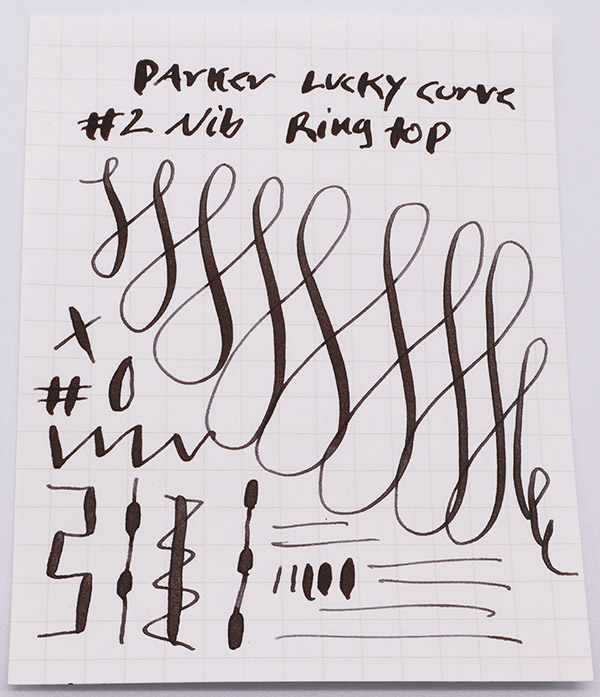 PArker Lucky curve
#2 Nib Ring top
X
# 0